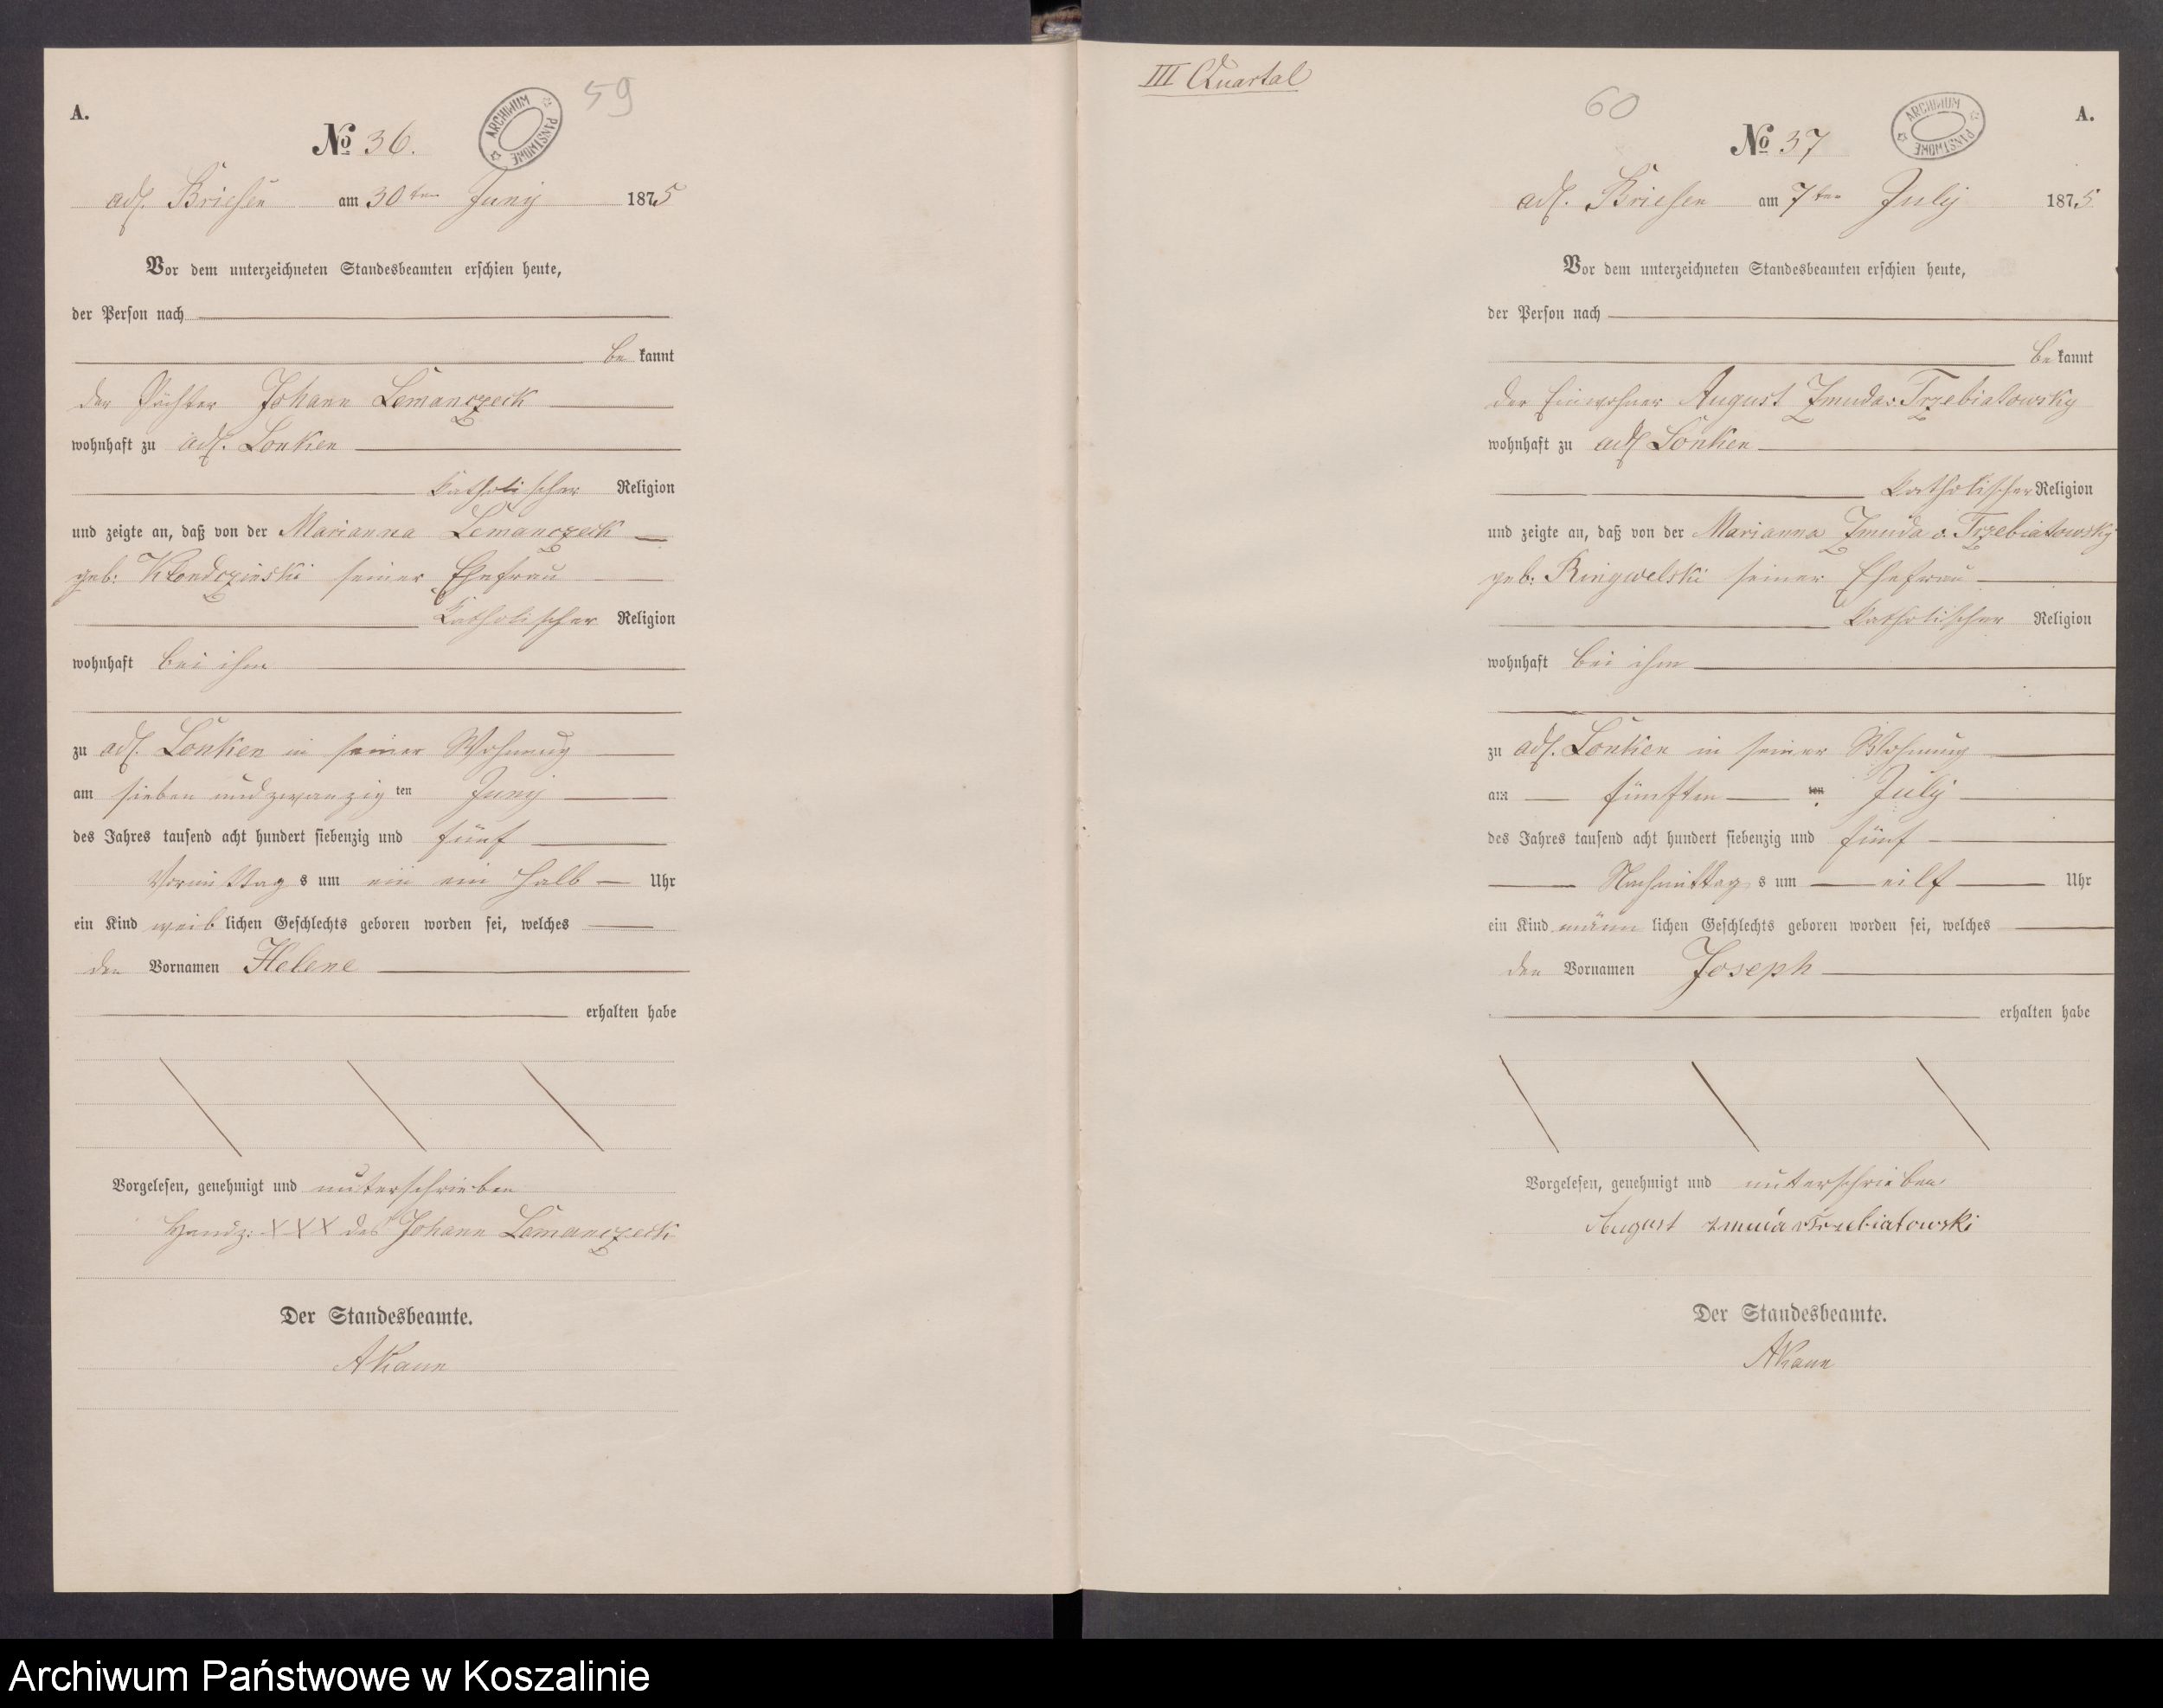 A.
59
ARCHIWUM PAŃSTWOWE
№ 36.
adl. Briesen am 30ten Juny 1875
Vor dem unterzeichneten Standesbeamten erschien heute,
der Person nach
be kannt
der Pächter Johann Lemanczeck
wohnhaft zu adl. Lonken
katholischer Religion
und zeigte an, daß von der Marianna Lemanczeck
geb: Klondczinski seiner Ehefrau
katholischer Religion
wohnhaft bei ihm
zu adl. Lonken in seiner Wohnung
am sieben und zwanzig ten Juny
des Jahres tausend acht hundert siebenzig und fünf
Vormittag s um ein ein halb Uhr
ein Kind weib lichen Geschlechts geboren worden sei, welches
den Vornamen Helene
erhalten habe
Vorgelesen, genehmigt und unterschrieben
Handz: XXX des Johann Lemanczeck
Der Standesbeamte.
AKann
III Quartal
60
ARCHIWUM PAŃSTWOWE
A.
№ 37
adl. Briesen am 7ten July 1875
Vor dem unterzeichneten Standesbeamten erschien heute,
der Person nach
be kannt
der Einwohner August Zmuda v. Trzebiatowsky
wohnhaft zu adl Lonken
katholischer Religion
und zeigte an, daß von der Marianna Zmuda v. Trzebiatowsky
geb: Ringwelski seiner Ehefrau
katholischer Religion
wohnhaft bei ihm
zu adl. Lonken in seiner Wohnung
am fünften ten July
des Jahres tausend acht hundert siebenzig und fünf
Nachmittag s um eilf Uhr
ein Kind männ lichen Geschlechts geboren worden sei, welches
den Vornamen Joseph
erhalten habe
Vorgelesen, genehmigt und unterschrieben
August v Trzebiatowski
Der Standesbeamte.
AKann
Archiwum Państwowe w Koszalinie